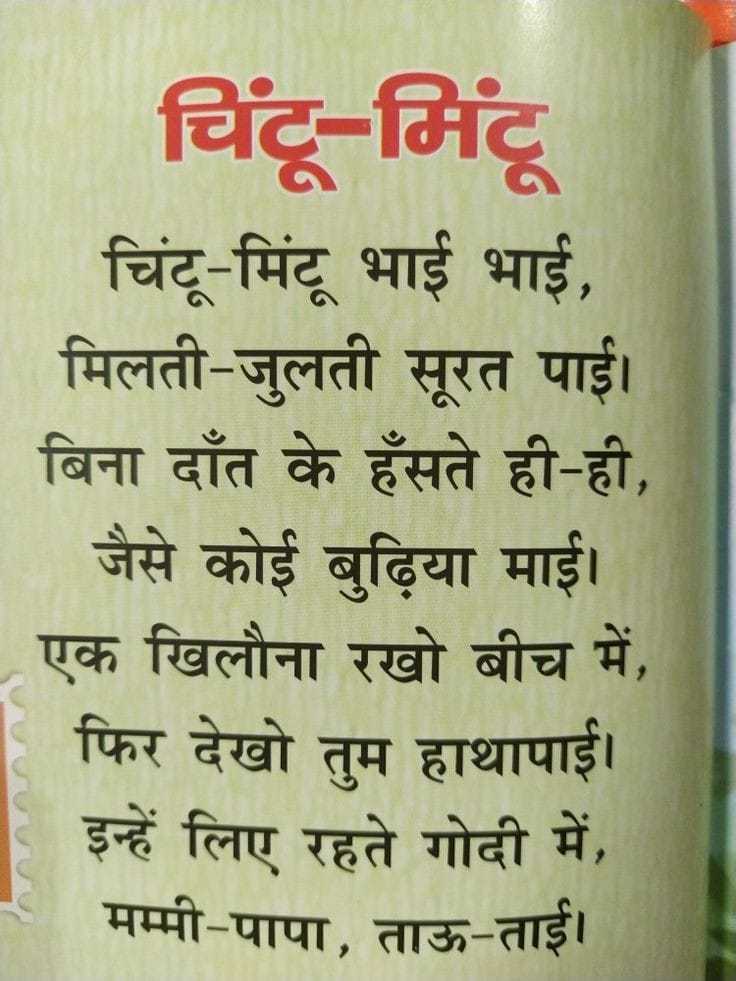 चिंटू-मिंटू
चिंटू-मिंटू भाई भाई,
मिलती-जुलती सूरत पाई।
बिना दाँत के हँसते ही-ही,
जैसे कोई बुढ़िया माई।
एक खिलौना रखो बीच में,
फिर देखो तुम हाथापाई।
इन्हें लिए रहते गोदी में,
मम्मी-पापा, ताऊ-ताई।